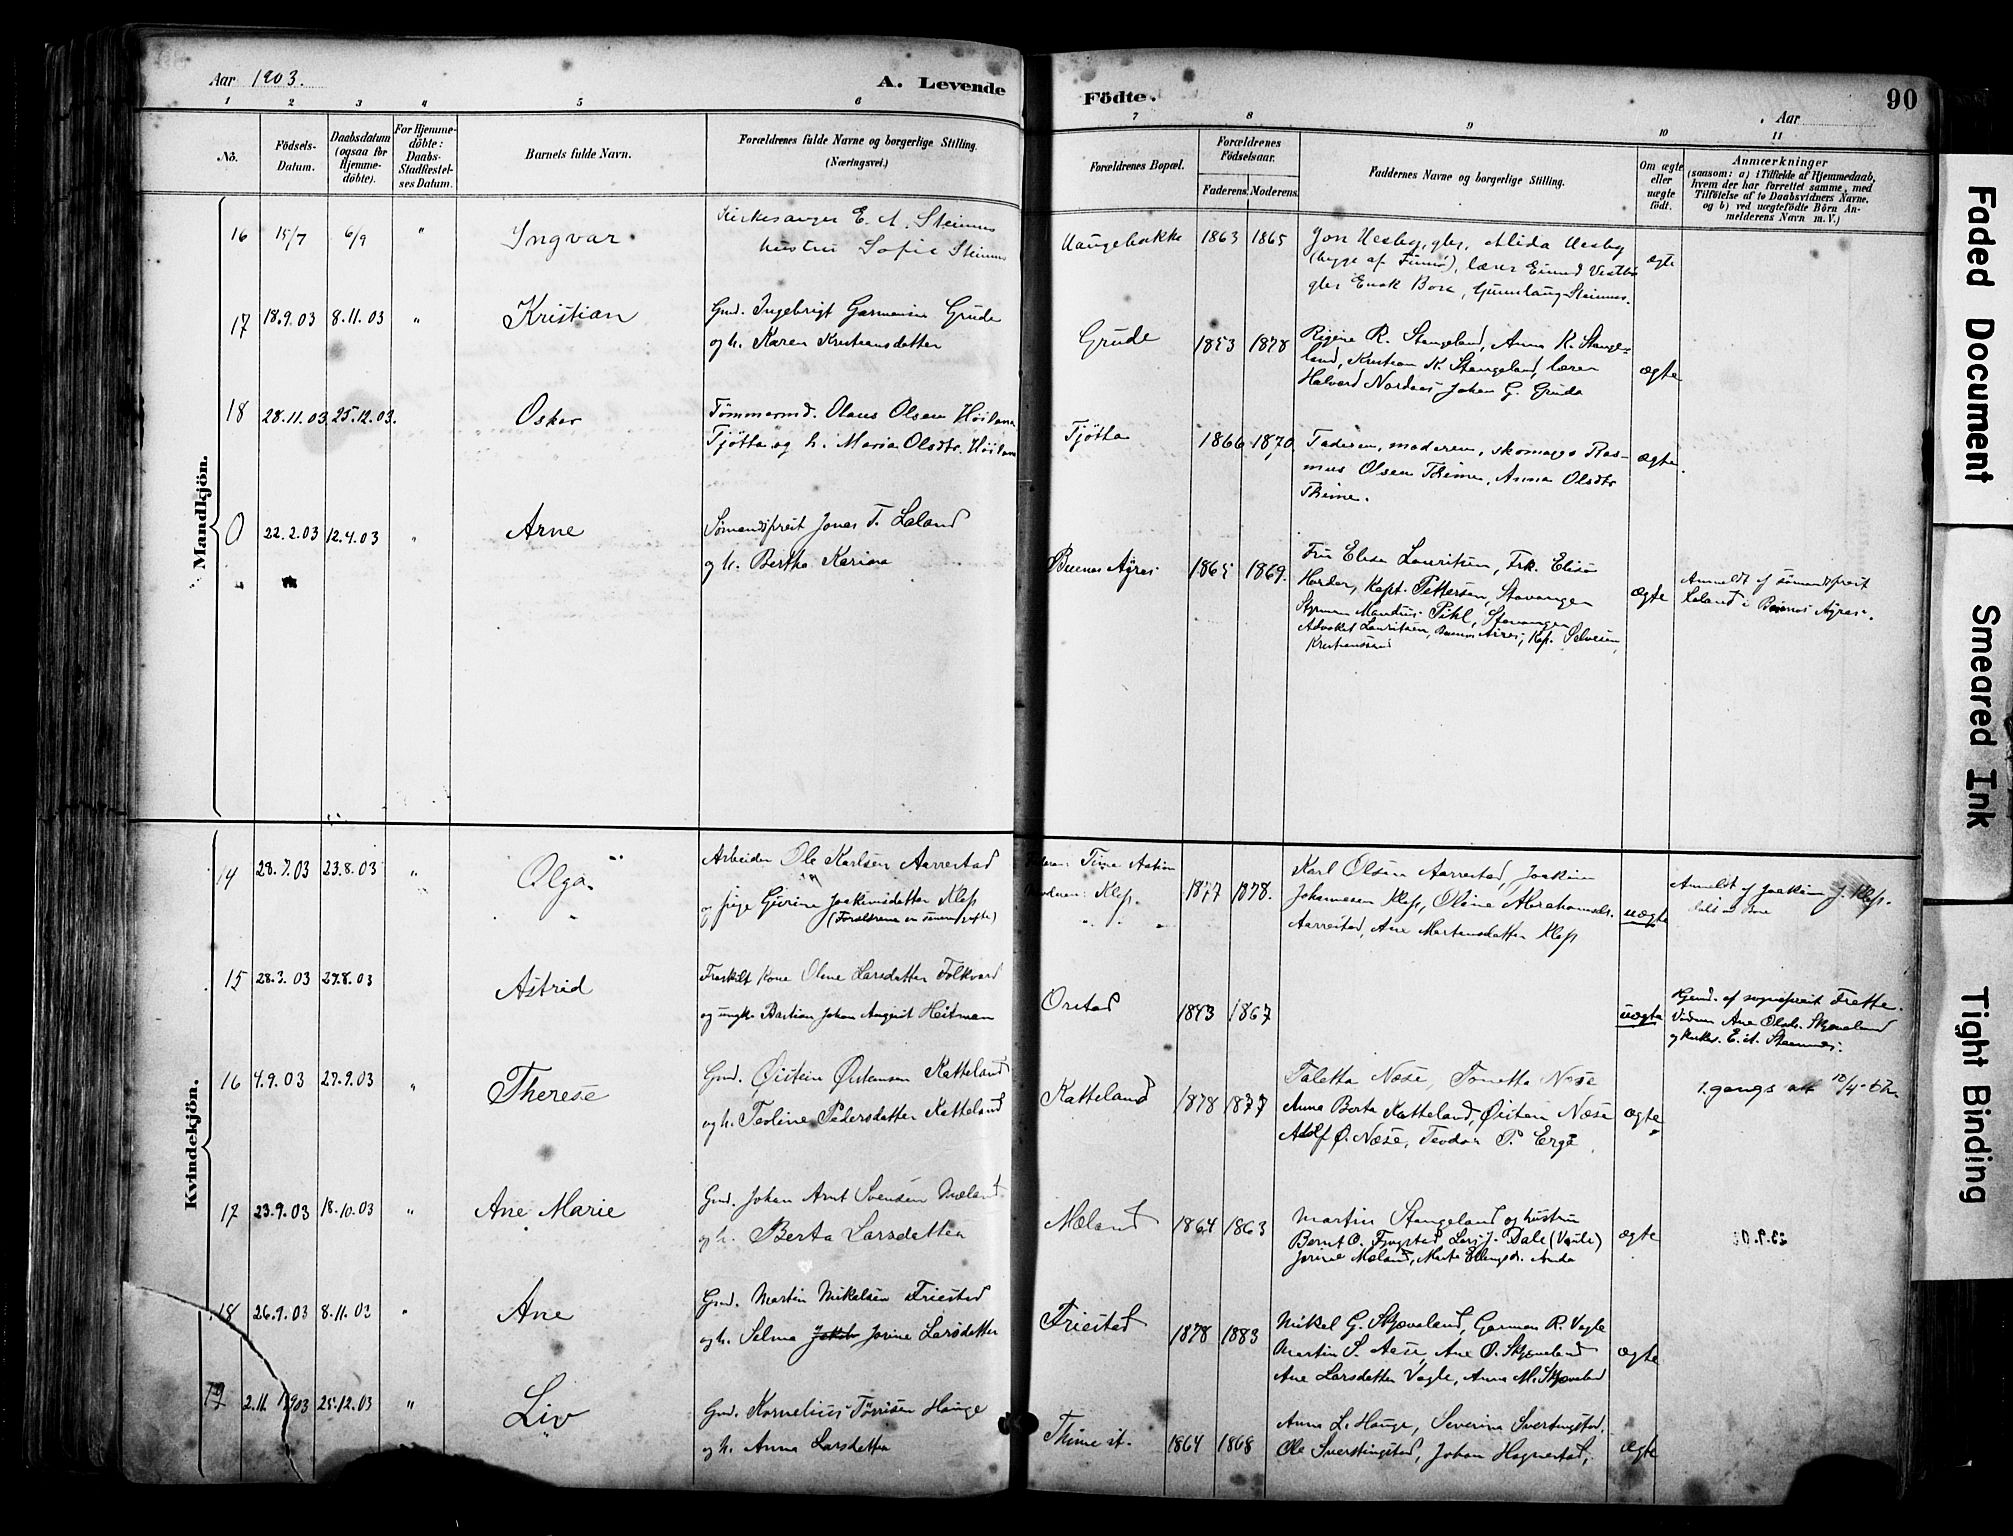 Aar 1903.
A. Levende
Födte.
Aar
90
1 2 3 4 5 6 7 8 9 10 11
No.
Födsels-Datum.
Daabsdatum (ogsaa for Hjemme-döbte).
For Hjemme-döbte: Daabs-Stadfæstel-ses Datum.
Barnets fulde Navn.
Forældrenes fulde Navne og borgerlige Stilling. (Næringsvei.)
Forældrenes Bopæl.
Forældrenes Födselsaar.
Faderens. Moderens.
Faddernes Navne og borgerlige Stilling.
Om ægte eller uægte födt.
Anmærkninger
(saasom: a) i Tilfælde af Hjemmedaab, hvem der har forrettet samme, med Tilföielse af to Daabsvidners Navne. og b) ved uægtefödte Börn An-melderens Navn m. V.)
Mandkjön.
16 15/7 6/9 " Ingvar
Kirkesanger E. A. Steinnes
hustru Sofie Steinnes
Haugebakke 1863 1865
Jon Nesby, gbr, Alida Nesby
lærer
gbr Enok Bore, Gunnlaug Steinnes.
ægte
17 18.9.03 8.11.03 " Kristian
Gmd. Ingebrigt Garmansen Grude
og h. Karen Kristiansdatter
Grude 1853 1878
R. Stangeland, Anna K. Stange-
land, Kristian K. Stangeland, lærer
Halvard Nordaas Johan G. Grude
ægte
18 28.11.03 25.12.03. Oskar
Tømmermd. Olaus Olsen Høiland
Tjøtta og h. Maria Olsdtr. Høiland
Tjøtta 1866 1870
Faderen, moderen, skomager Ras-
mus Olsen Thime, Anna Olsdtr
Thime.
ægte.
0 22.2.03 12.4.03 " Arne
Sømandsprest Jonas T. Laland
og h. Bertha Karina
Buenos Ayres 1865 1869.
Fru Elisa Lauritsen, Frk. Elise
Harder, Kapt. Pettersen, Stavanger
Styrman Mandius Pihl, Stavanger
Advokat Lauritsen, Buenos Aires, Kap. Selvesen,
Kristianssand
ægte
Anmeldt af sømandsprest
Laland i Buenos Ayres.
Kvindekjön.
14 28.7.03 23.8.03 " Olga
Arbeider Ole Karlsen Aarrestad
og pige Gurine Joakimsdatter Klep
(Forældrene er senere gifte)
Time Station
Moderen: Klep. 1877 1878.
Karl Olsen Aarrestad, Joakim
Johannesen Klep, Oline Abrahamsdtr.
Aarrestad, Ane Martinsdatter Klep
uægte
Anmeldt af Joakim J. Klep.
15 28.3.03 27.8.03 Astrid
Fraskilt Kone Oline Larsdatter Folkvord
og ungk. Bastian Johan August Heitman
Orstad 1873 1867
uægte
Hjemd. af sogneprest Frette.
Vidner Ane Olsdtr. Skjæveland
og kirkes. E. A. Steinnes.
16 4.9.03 27.9.03 " Therese
Gmd. Øistein Øistensen Katteland
og h. Teoline Pedersdatter Katteland
Katteland 1878 1877
Taletta Næse, Tonetta Næse
Anna Berta Katteland, Øistein Næse
Adolf Ø. Næse, Teodor P. Erga
ægte
1. gangs att 10/4
17 23.9.03 18.10.03 " Ane Marie
Gmd. Johan Arnt Svendsen Mæland
og h. Berta Larsdatter
Mæland 1864 1863
Martin Stangeland og hustru
Bernt O. Fjogstad Lars J. Dale (Vaule)
Jorine Mæland, Marta Ellingsdr. Anda
ægte
18 26.9.03 8.11.03 " Ane
Gmd. Martin Mikalsen Friestad
og h. Selma Jorine Larsdatter
Friestad 1878 1883
Mikal G. Skjæveland, Garman R. Vagle
Martin S. Aase, Ane O. Skjæveland
Ane Larsdatter Vagle, Anna M. Skjæveland
ægte
19 2.11.1903 25.12.03 " Liv
Gmd. Kornelius Tørrisen Hauge
og h. Anna Larsdatter
Thime st. 1864 1868
Anna L. Hauge, Severina Svertingstad,
Ole Svertingstad, Johan Hognestad,
ægte
Faded Document
Smeared Ink
Tight Binding